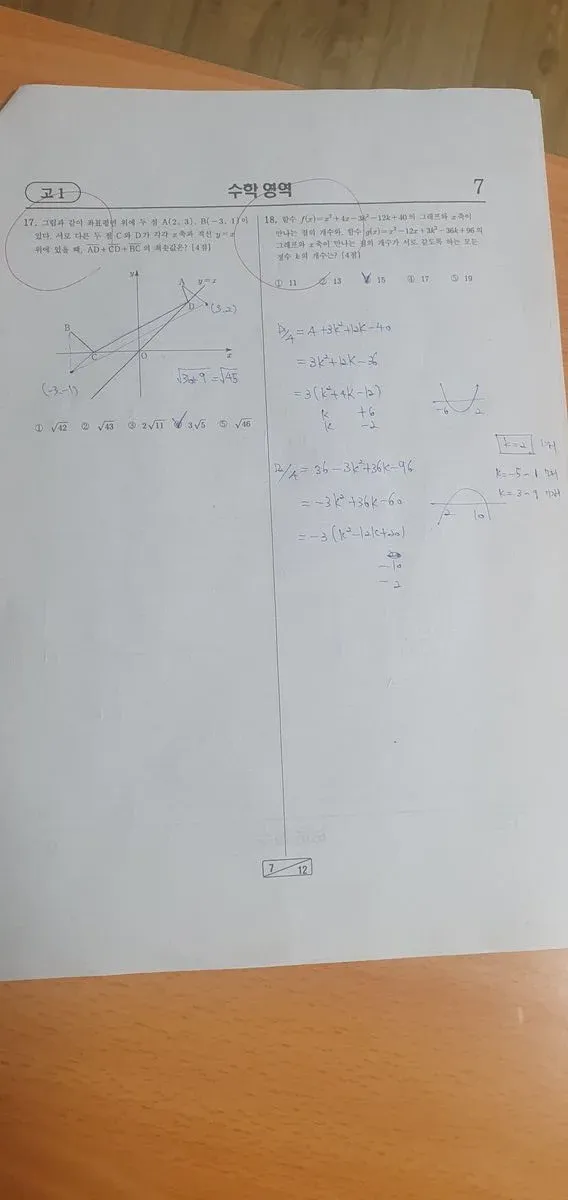 고 1
수학 영역
7
17. 그림과 같이 좌표평면 위에 두 점 A(2, 3), B(−3, 1)이
있다. 서로 다른 두 점 C와 D가 각각 x축과 직선 y=x
위에 있을 때, AD+CD+BC의 최솟값은? [4점]
y
A
y=x
D
(3,2)
B
C
O
x
(-3,-1)
√36+9 = √45
① √42 ② √43 ③ 2√11 ④ 3√5 ⑤ √46
18. 함수 f(x)=x²+4x−3k²−12k+40의 그래프와 x축이
만나는 점의 개수와, 함수 g(x)=x²−12x+3k²−36k+96의
그래프와 x축이 만나는 점의 개수가 서로 같도록 하는 모든
정수 k의 개수는? [4점]
① 11 ② 13 ③ 15 ④ 17 ⑤ 19
D/4 = 4+3k²+12k-40
= 3k²+12k-36
= 3(k²+4k-12)
k +6
k -2
-6 2
k=2
k=-5-1
k=3-9
D/4 = 36-3k²+36k-96
= -3k²+36k-60
= -3(k²-12k+20)
-10
-2
2 10
7
12